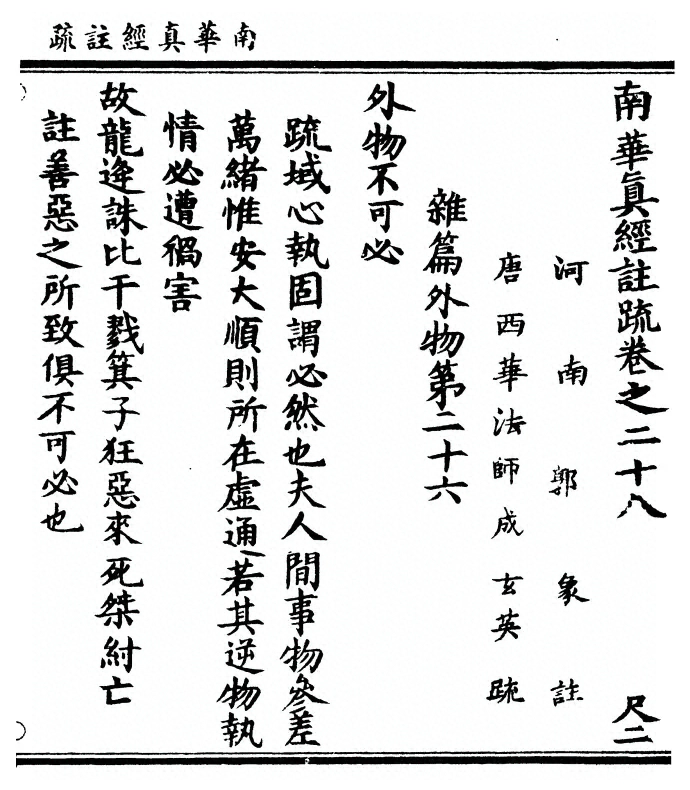 南華真經註疏
南華眞經註疏卷之二十八 尺二
河南郭象註
唐西華法師成玄英疏
雜篇外物第二十六
外物不可必
疏域心執固謂必然也夫人間事物參差
萬緒惟安大順則所在虛通若其逆物執
情必遭禍害
故龍逄誅比干戮箕子狂惡來死桀紂亡
註善惡之所致俱不可必也